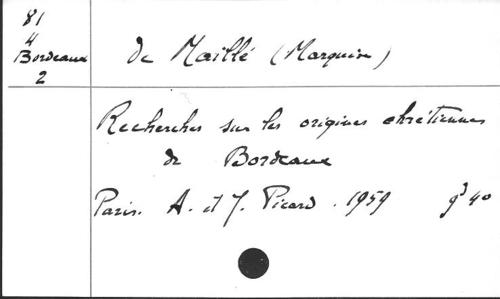 81
4
Bordeaux
2
de Maillé (Marquise)
Recherches sur les origines chrétiennes
de Bordeaux
Paris. A. et J. Picard. 1959 gd 4o